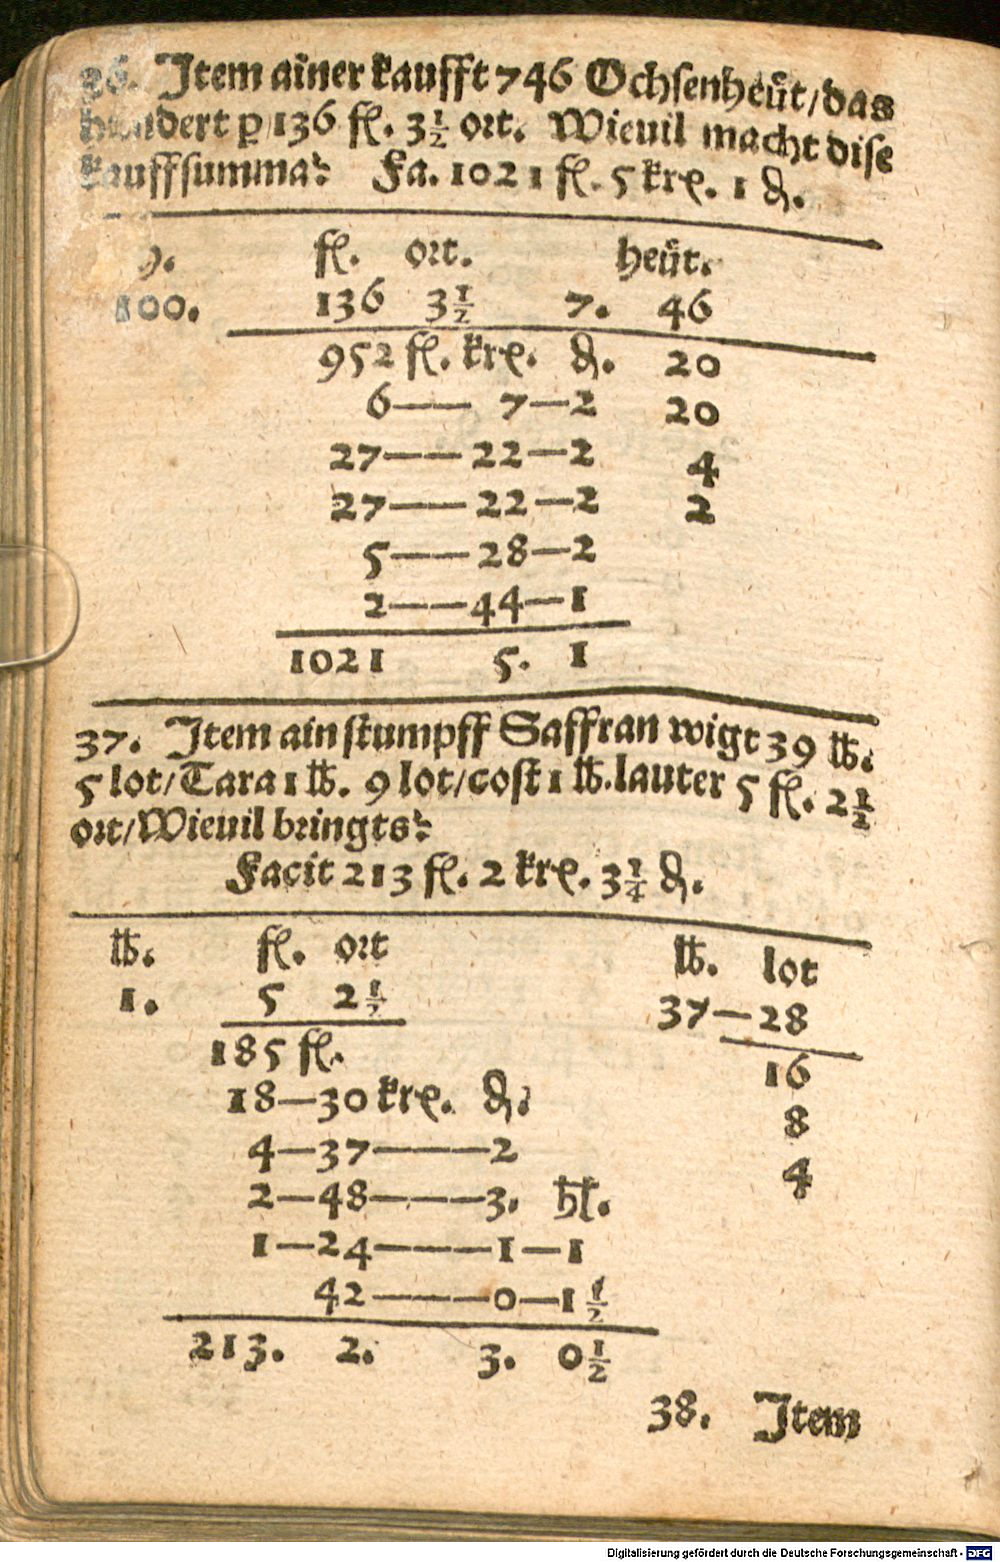 36. Item ainer kaufft 746 Ochsenheüt/das
hundert ꝑ 136 fl. 3 1/2 ort. Wieuil macht dise
kauffsumma? Fa. 1021 fl. 5 krx. 1 ₰.
fl. ort. heüt.
100. 136 3 1/2 7. 46
952 fl. krx. ₰. 20
6—— 7—2 20
27——22—2 4
27——22—2 2
5——28—2
2——44—1
1021 5. 1
37. Item ain stumpff Saffran wigt 39 lb.
5 lot/Tara 1 lb. 9 lot/cost 1 lb. lauter 5 fl. 2 1/2
ort/Wieuil bringts?
Facit 213 fl. 2 krx. 3 1/4 ₰.
lb. fl. ort lb. lot
1. 5 2 1/2 37—28
185 fl. 16
18—30 krx. ₰. 8
4—37———2 4
2—48———3. hl.
1—24———1—1
42———0—1 1/2
213. 2. 3. 0 1/2
38. Item
Digitalisierung gefördert durch die Deutsche Forschungsgemeinschaft - DFG